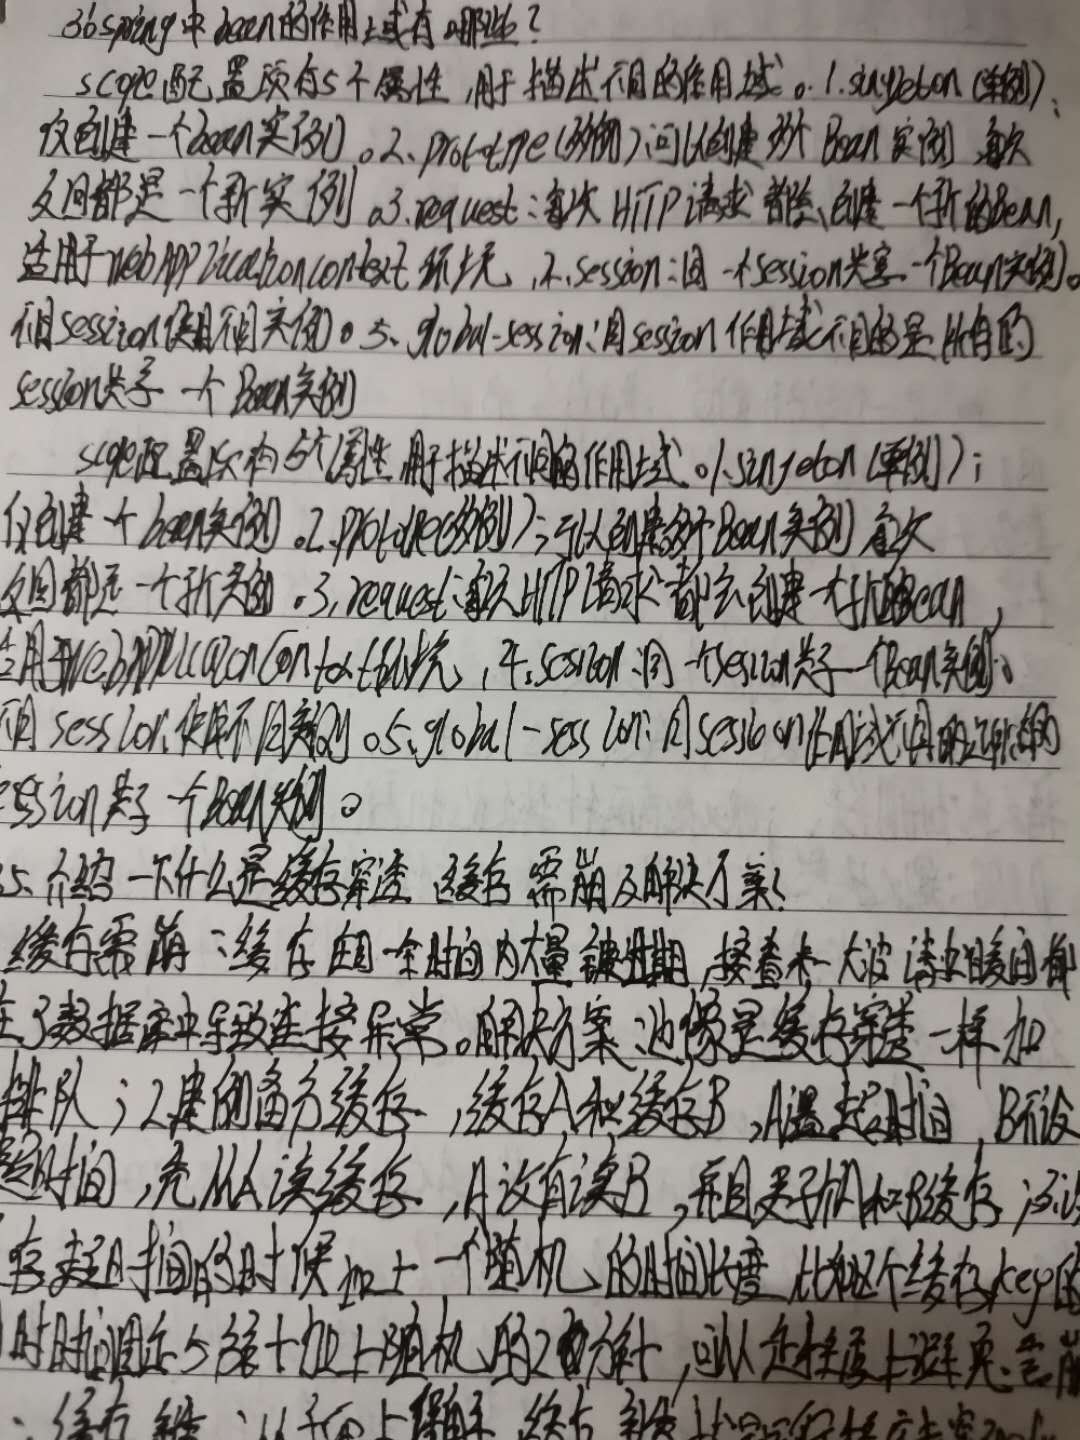 36 spring中bean的作用域有哪些？
scope配置项有5个属性,用于描述不同的作用域。1.singleton(单例);
仅创建一个bean实例。2.prototype(多例):可以创建多个Bean实例 每次
返回都是一个新实例。3.request:每次HTTP请求都会创建一个新的Bean,
适用于webApplicationcontext环境,2.session:同一个session共享一个Bean实例。
不同session使用不同实例。5.global-session:同session作用域不同的是所有的
session共享一个Bean实例
scope配置项有5个属性 用于描述不同的作用域。1.singleton(单例);
仅创建一个bean实例.2.prototype(多例):可以创建多个Bean实例 每次
返回都是一个新实例.3.request:每次HTTP请求都会创建一个新的Bean,
适用于WebApplicationContext环境,4.session:同一个session共享一个Bean实例、
不同session使用不同实例。5.global-session:同session作用域不同的是所有的
session共享一个Bean实例。
5.介绍一下什么是缓存穿透 缓存雪崩及解决方案？
缓存雪崩:缓存在同一个时间内大量键过期,接着来一大波请求瞬间都
在了数据库中导致连接异常。解决方案:也像是缓存穿透一样加
排队;2建倒备份缓存,缓存A和缓存B,A设置超时间,B不设
超时间,先从A读缓存,A没有读B,并且更新A和B缓存;
存超时间的时候加上一个随机的时间长度 比如这个缓存key的
时时间是5分钟加上随机的2分钟,可以一定程度上避免雪崩